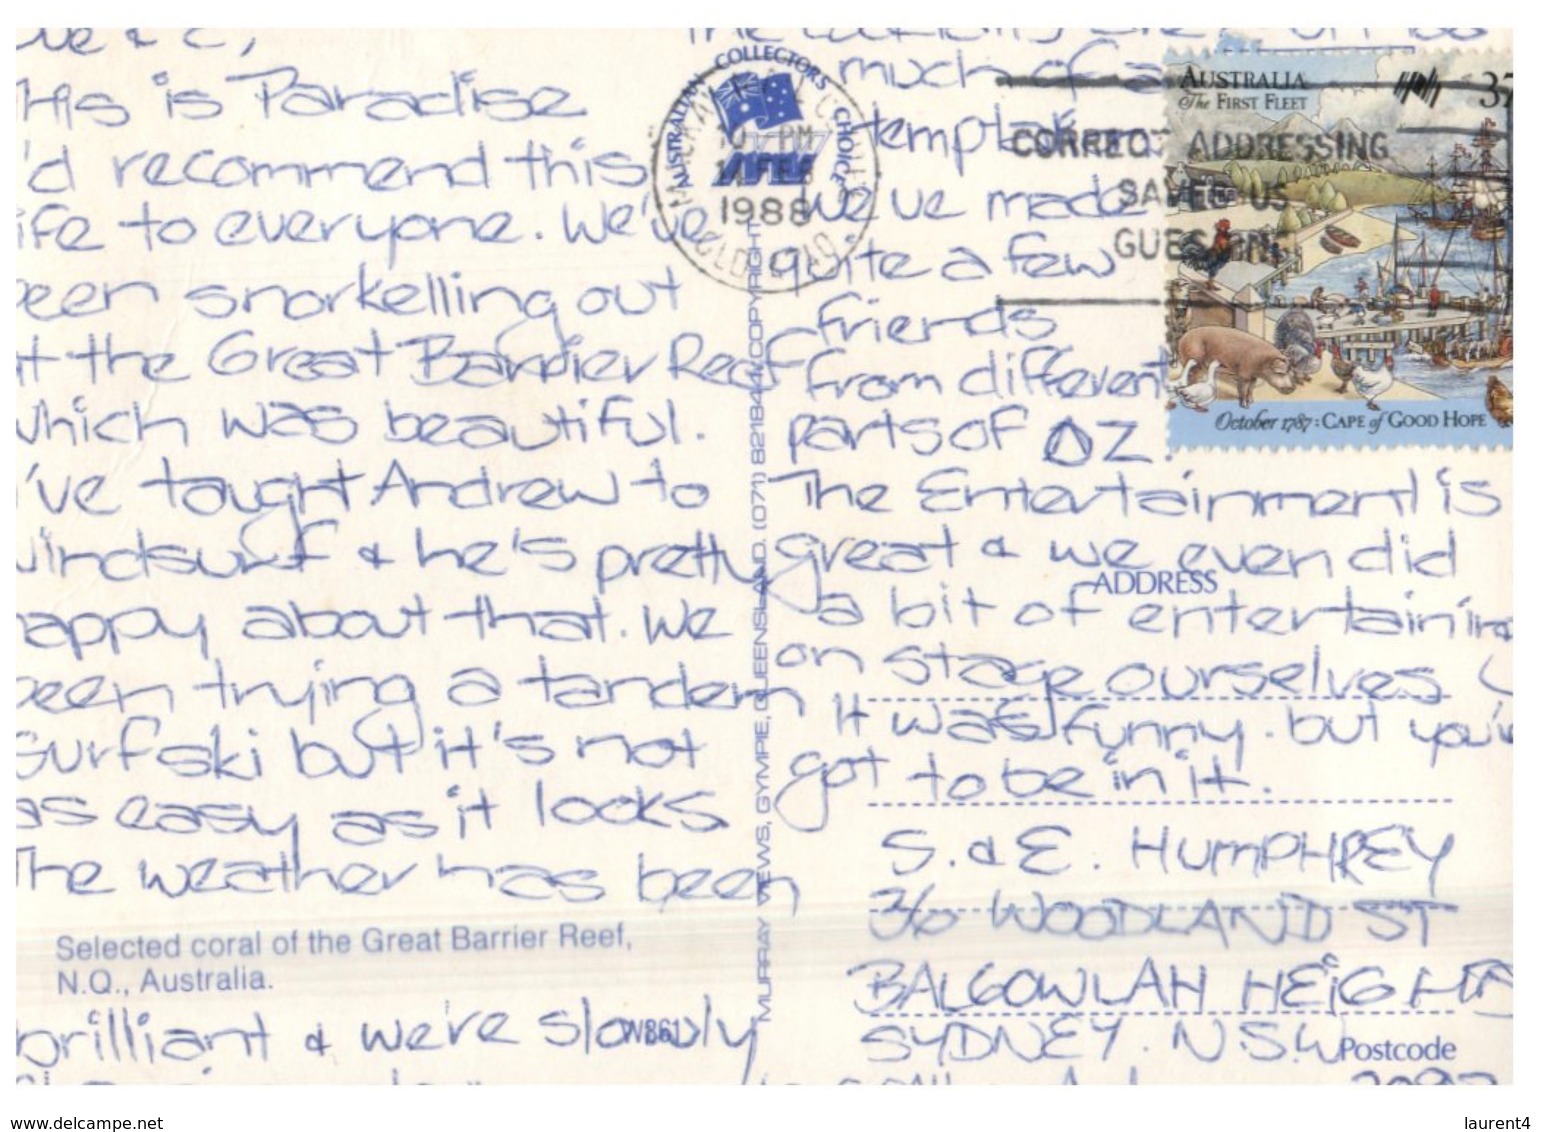 & E,
This is Paradise
I'd recommend this
life to everyone. We've
been snorkelling out
at the Great Barrier Reef
which was beautiful.
I've taught Andrew to
windsurf & he's pretty
happy about that. We
been trying a tandem
surfski but it's not
as easy as it looks
The weather has been
Selected coral of the Great Barrier Reef,
N.Q., Australia.
brilliant & we're slowly
N861
AUSTRALIAN COLLECTORS CHOICE
10 - PM
FEB
1988
QLD
MURRAY VIEWS, GYMPIE, QUEENSLAND. (071) 821844 COPYRIGHT
much of a
We've made
quite a few
friends
from different
parts of OZ.
The Entertainment is
great & we even did
a bit of entertaining
on stage ourselves
It was funny. but you've
got to be in it.
ADDRESS
S. & E. HUMPHREY
WOODLAND ST
BALGOWLAH HEIGHTS
SYDNEY. N.S.W
Postcode
CORRECT ADDRESSING
SAVES US
GUESSING
AUSTRALIA
The FIRST FLEET
37
October 1787: CAPE of GOOD HOPE
www.delcampe.net
laurent4